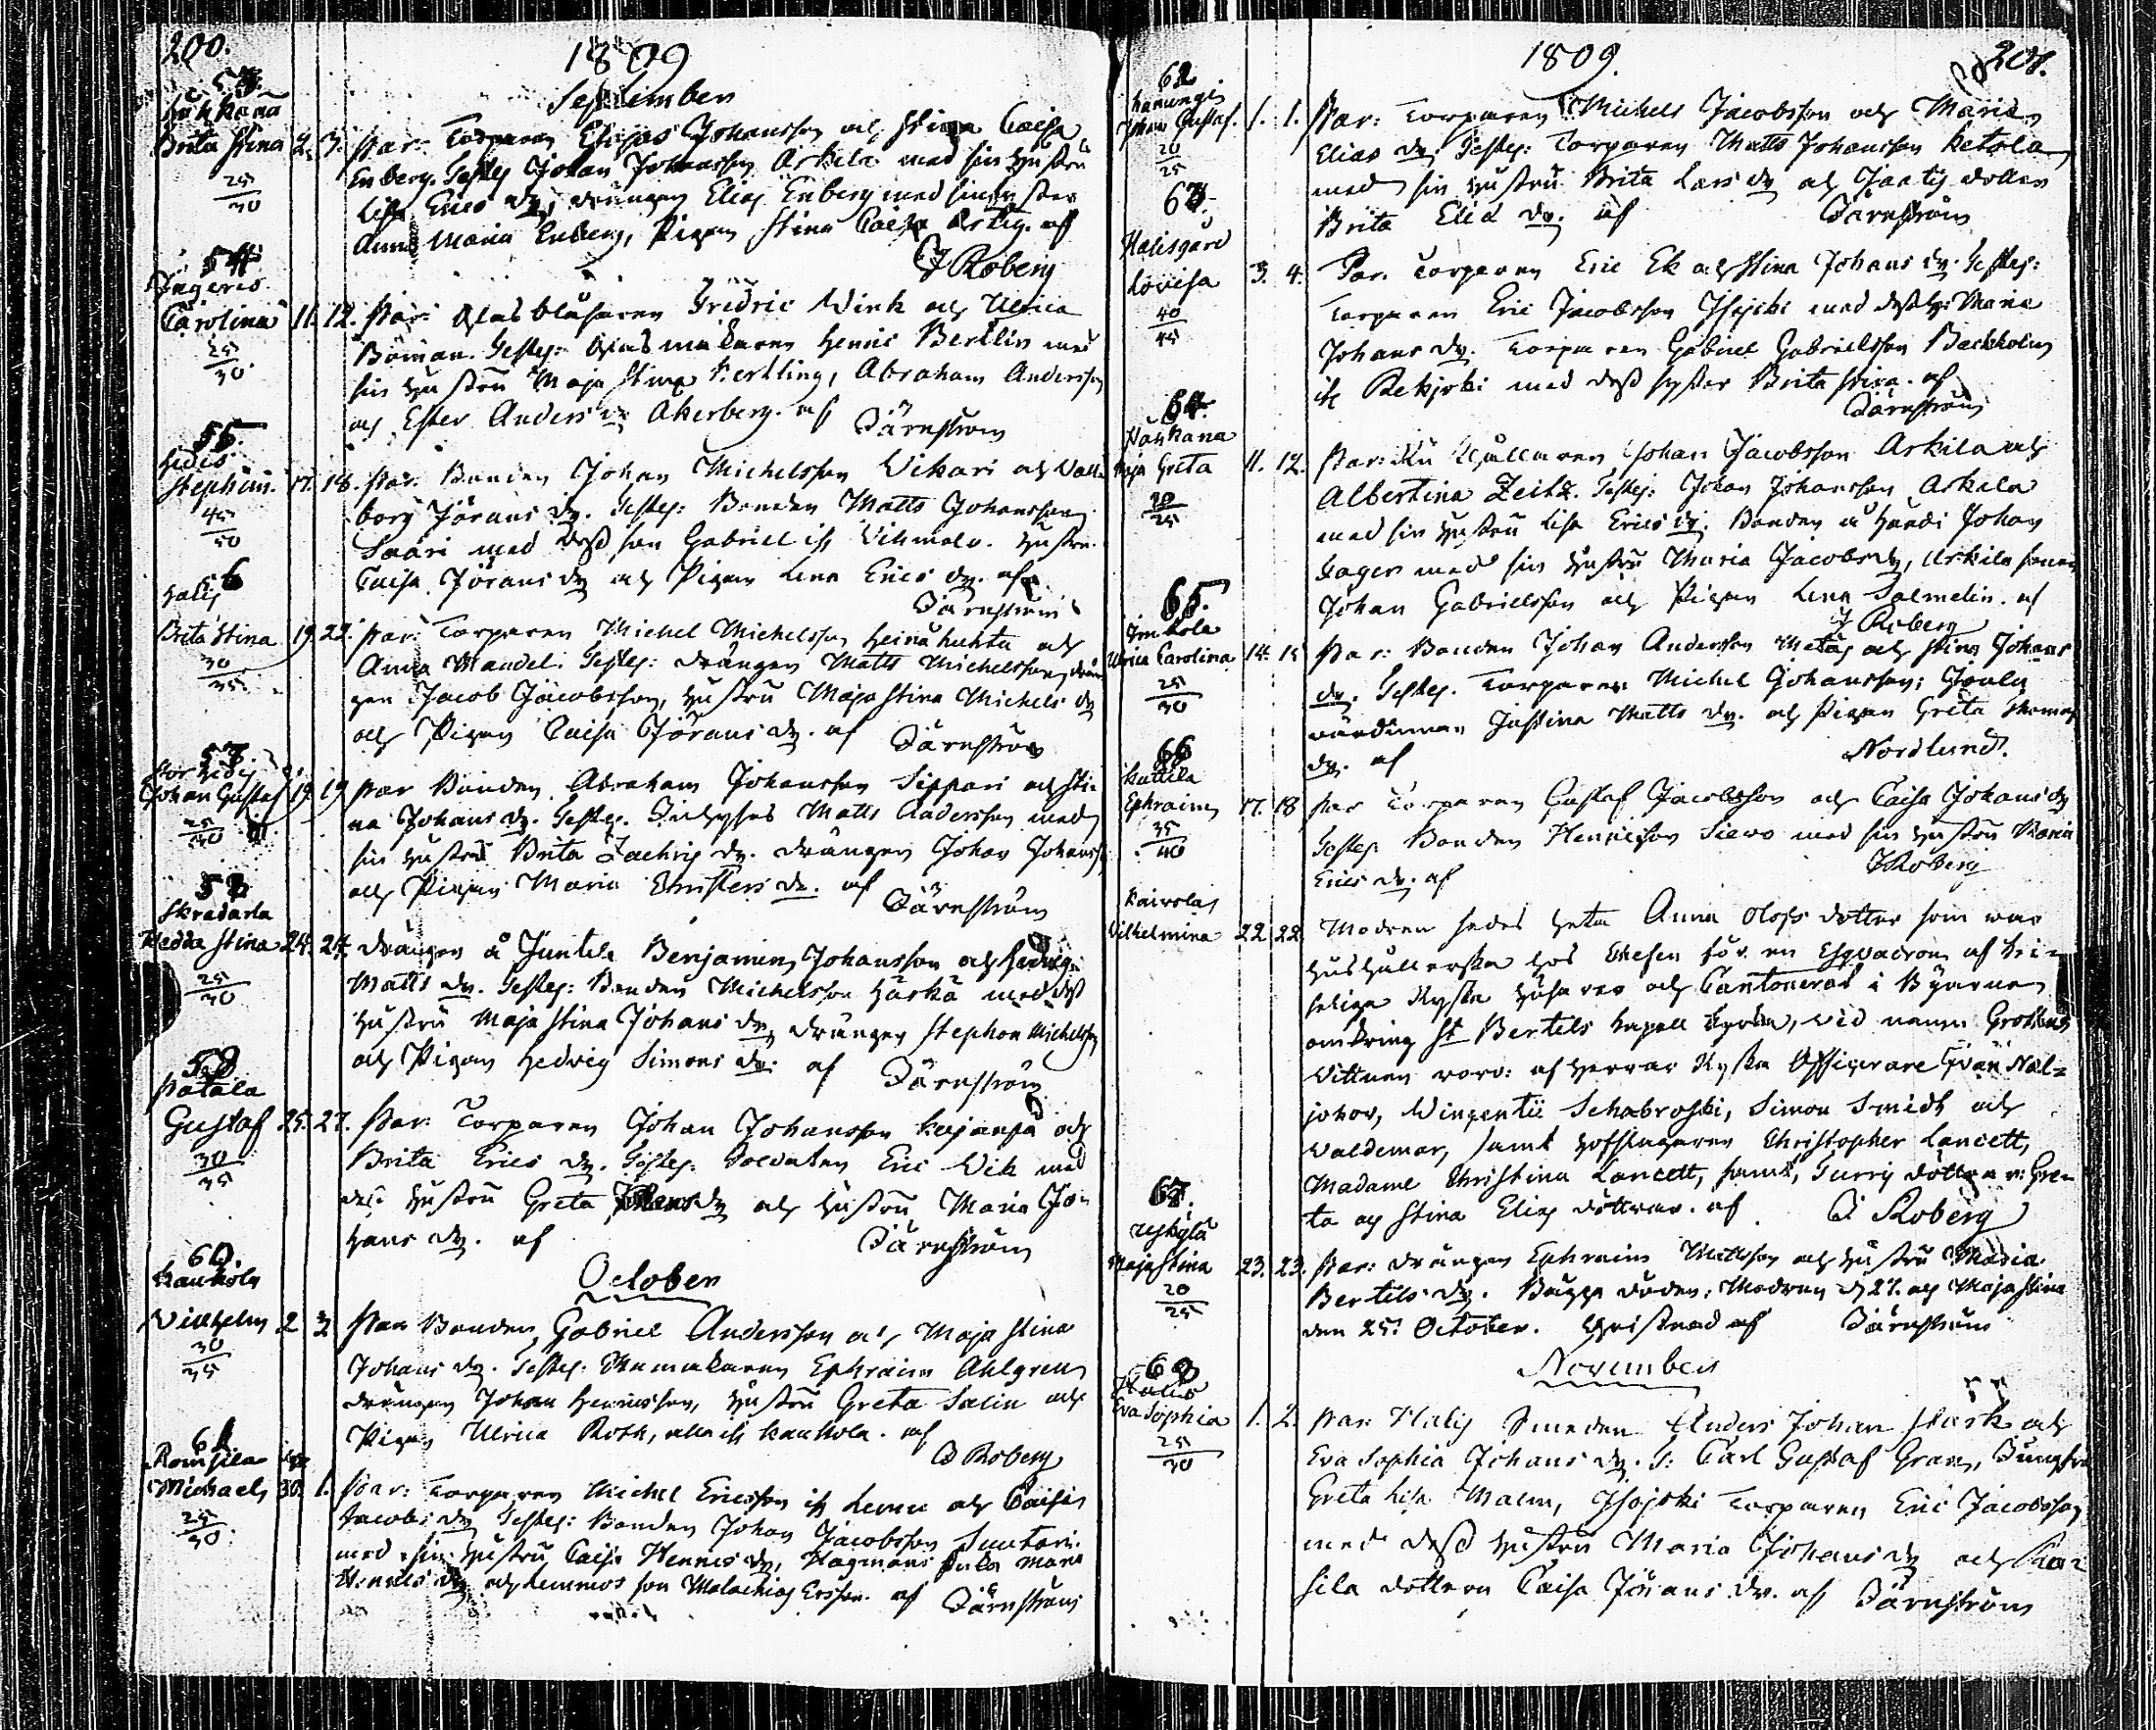 200.
1809
September
53
Haukana
Brita Stina 2. 3. Par: Torparen Elias Johansson och Stina Caisa
25/30
Enberg. Testes Johan Johansson Arkila med sin hustru
Lisa Erics dr, drängen Elias Enberg med sin syster
Anna Maria Enberg, Pigan Stina Caisa af
J Roberg
54
Ingeris
Carolina 11. 12. Par: Glasblåsaren Fredric Wink och Ulrica
25/30
Böman. Testes: Glasmakaren Henric Berklin med
sin hustru Maja Stina Berkling, Abraham Andersson
och Ester Anders dr Åkerberg. af Järnström
55.
Hedis
Stephan. 17. 18. Par: Bonden Johan Michelsson Wikari och Wal-
45/50
borg Jörans dr. Testes: Bonden Matts Johansson
Saari med dess son Gabriel if. hustru
Caisa Jörans dr och Pigan Lena Erics dr. af
Järnström
56
Halis
Brita Stina 19. 22. Par: Torparen Michel Michelsson Heinähuhta och
30/35
Anna Mandel. Testes: drängen Matts Michelsson, drän-
gen Jacob Jacobsson, hustru Maja Stina Michels dr
och Pigan Caisa Jörans dr. af Järnström
57
Stor Hedis
Johan Gustaf 19. 19 Par Bonden Abraham Johansson Sippari och Sti-
25/30
na Johans dr. Testes. Inhyses Matts Andersson med
sin hustru Brita Zachris dr. drängen Johan Johansson
och Pigan Maria Christers dr. af Järnström
58
Skredarla
Hedda Stina 24. 24. drängen å Juntila Benjamin Johansson och Hedvig
25/30
Matts dr. Testes: Bonden Michelsson Härkä med dess
hustru Maja Stina Johans dr, drängen Stephan Michelsson
och Pigan Hedvig Simons dr. af Järnström
59
Patala
Gustaf 25. 27. Par: Torparen Johan Johansson Kajanpä och
30/35
Brita Erics dr. Testes: Soldaten Eric Wik med
dess hustru Greta Johans dr och hustru Maria Jo-
hans dr. af Järnström
October
60
Kaukola
Wilhelm 2 3 Par Bonden Gabriel Andersson och Maja Stina
30/35
Johans dr. Testes: Ephraim Ahlgren
drängen Johan Henricsson, hustru Greta Salin och
Pigan Ulrica Roth, alla if Kaukola. af
J Roberg
61
Romsila
Michael, 30. 1. Par: Torparen Michel Ericsson if Lemu och Caisa
25/30
Jacobs dr Testes: Bonden Johan Jacobsson Suutari
med sin hustru Caisa Henrics dr, Hagmans Maria
Henrics dr och Lemmos son Malachias Ersson. af Järnström
1809.
201.
62
Kanungis
Johan Gustaf. 1. 1. Par: Torparen Michels Jacobsson och Maria
20/25
Elias dr: Testes: Torparen Matts Johansson Ketola
med sin hustru Brita Lars dr och dotter
Brita Elia dr. af Järnström
63
Halisgård
Lovisa 3. 4. Par. Torparen Eric Ek och Stina Johans dr. Testes:
40/45
Torparen Eric Jacobsson Isojoki med dess hu: Maria
Johans dr. Torparen Gabriel Gabrielsson Backholm
if med dess syster Brita Stina. af
Järnström
64.
Haukana
Maja Greta 11. 12. Par: Johan Jacobsson Arkila och
20/25
Albertina Zeitz. Testes: Johan Johansson Arkila
med sin hustru Lisa Erics dr. Bonden å Johan
med sin hustru Maria Jacobs dr, Arkila sonen
Johan Gabrielsson och Pigan Lena Salmelin. af
J Roberg
65.
Imkola
Ulrica Carolina 14. 15 Par: Bonden Johan Andersson och Stina Johans
25/30
dr. Testes. Torparen Michel Johansson,
värdinnan Justina Matts dr. och Pigan Greta Thomas
dr. af Nordlund.
66
Kattila
Ephraim 17. 18 Par Torparen Gustaf Jacobsson och Caisa Johans dr
35/40
Testes Bonden Henricson Siewo med sin hustru Maria
Erics dr. af J Roberg
Kairola
Wilhelmina 22 22. Modren sades heta Anna Olofs dotter som war
hushållerska hos Chefen för en Esquadron af Kei-
serliga Ryska husarer och Cantonerat i Byarne
omkring St Bertels kapell kyrka, vid namn
Wittnen voro: af herrar Ryska Officerare Ivan Nal=
johov, Wingentii Schabroski, Simon Smidt och
Waldemar, samt hofslagaren Christopher Lancett,
Madame Christina Lancett, samt, döttrar: Gre-
ta och Stina Elias döttrar. af J Roberg
67.
Reskylä
Maja Stina 23. 23. Par: drängen Ephraim Mattsson och hustru Maria
20/25
Bertils dr. Bägge döda; Modren d 27. och Maja Stina
den 25: October. Christnad af Järnström
November
69
Halis
Eva Sophia 1. 2. Par. Halis Smeden Anders Johan Stark och
25/30
Eva Sophia Johans dr. T: Carl Gustaf Gran, Jungfru
Greta Lisa Malm, Isojoki Torparen Eric Jacobsson
med dess hustru Maria Johans dr och
sila dottren Caisa Jörans dr. af Järnström